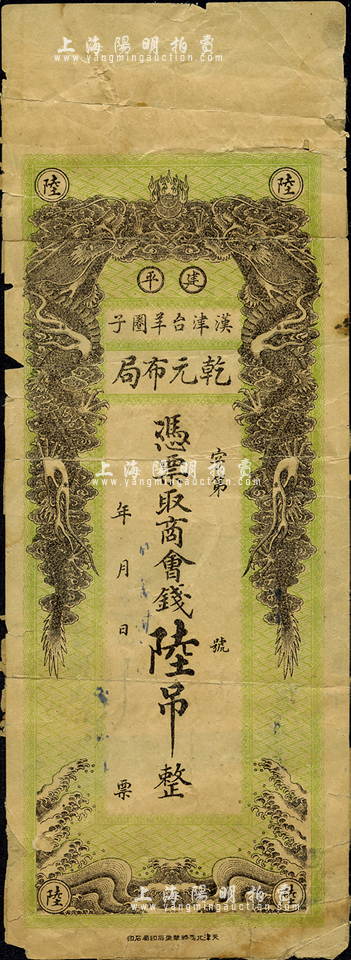 上海陽明拍賣
www.yangmingauction.com
陸
陸
建平
漢津台羊圈子
乾元布局
字第 號
憑票取商會錢陸吊整
年 月 日 票
上海陽明拍賣
www.yangmingauction.com
上海陽明拍賣
www.yangmingauction.com
陸
陸